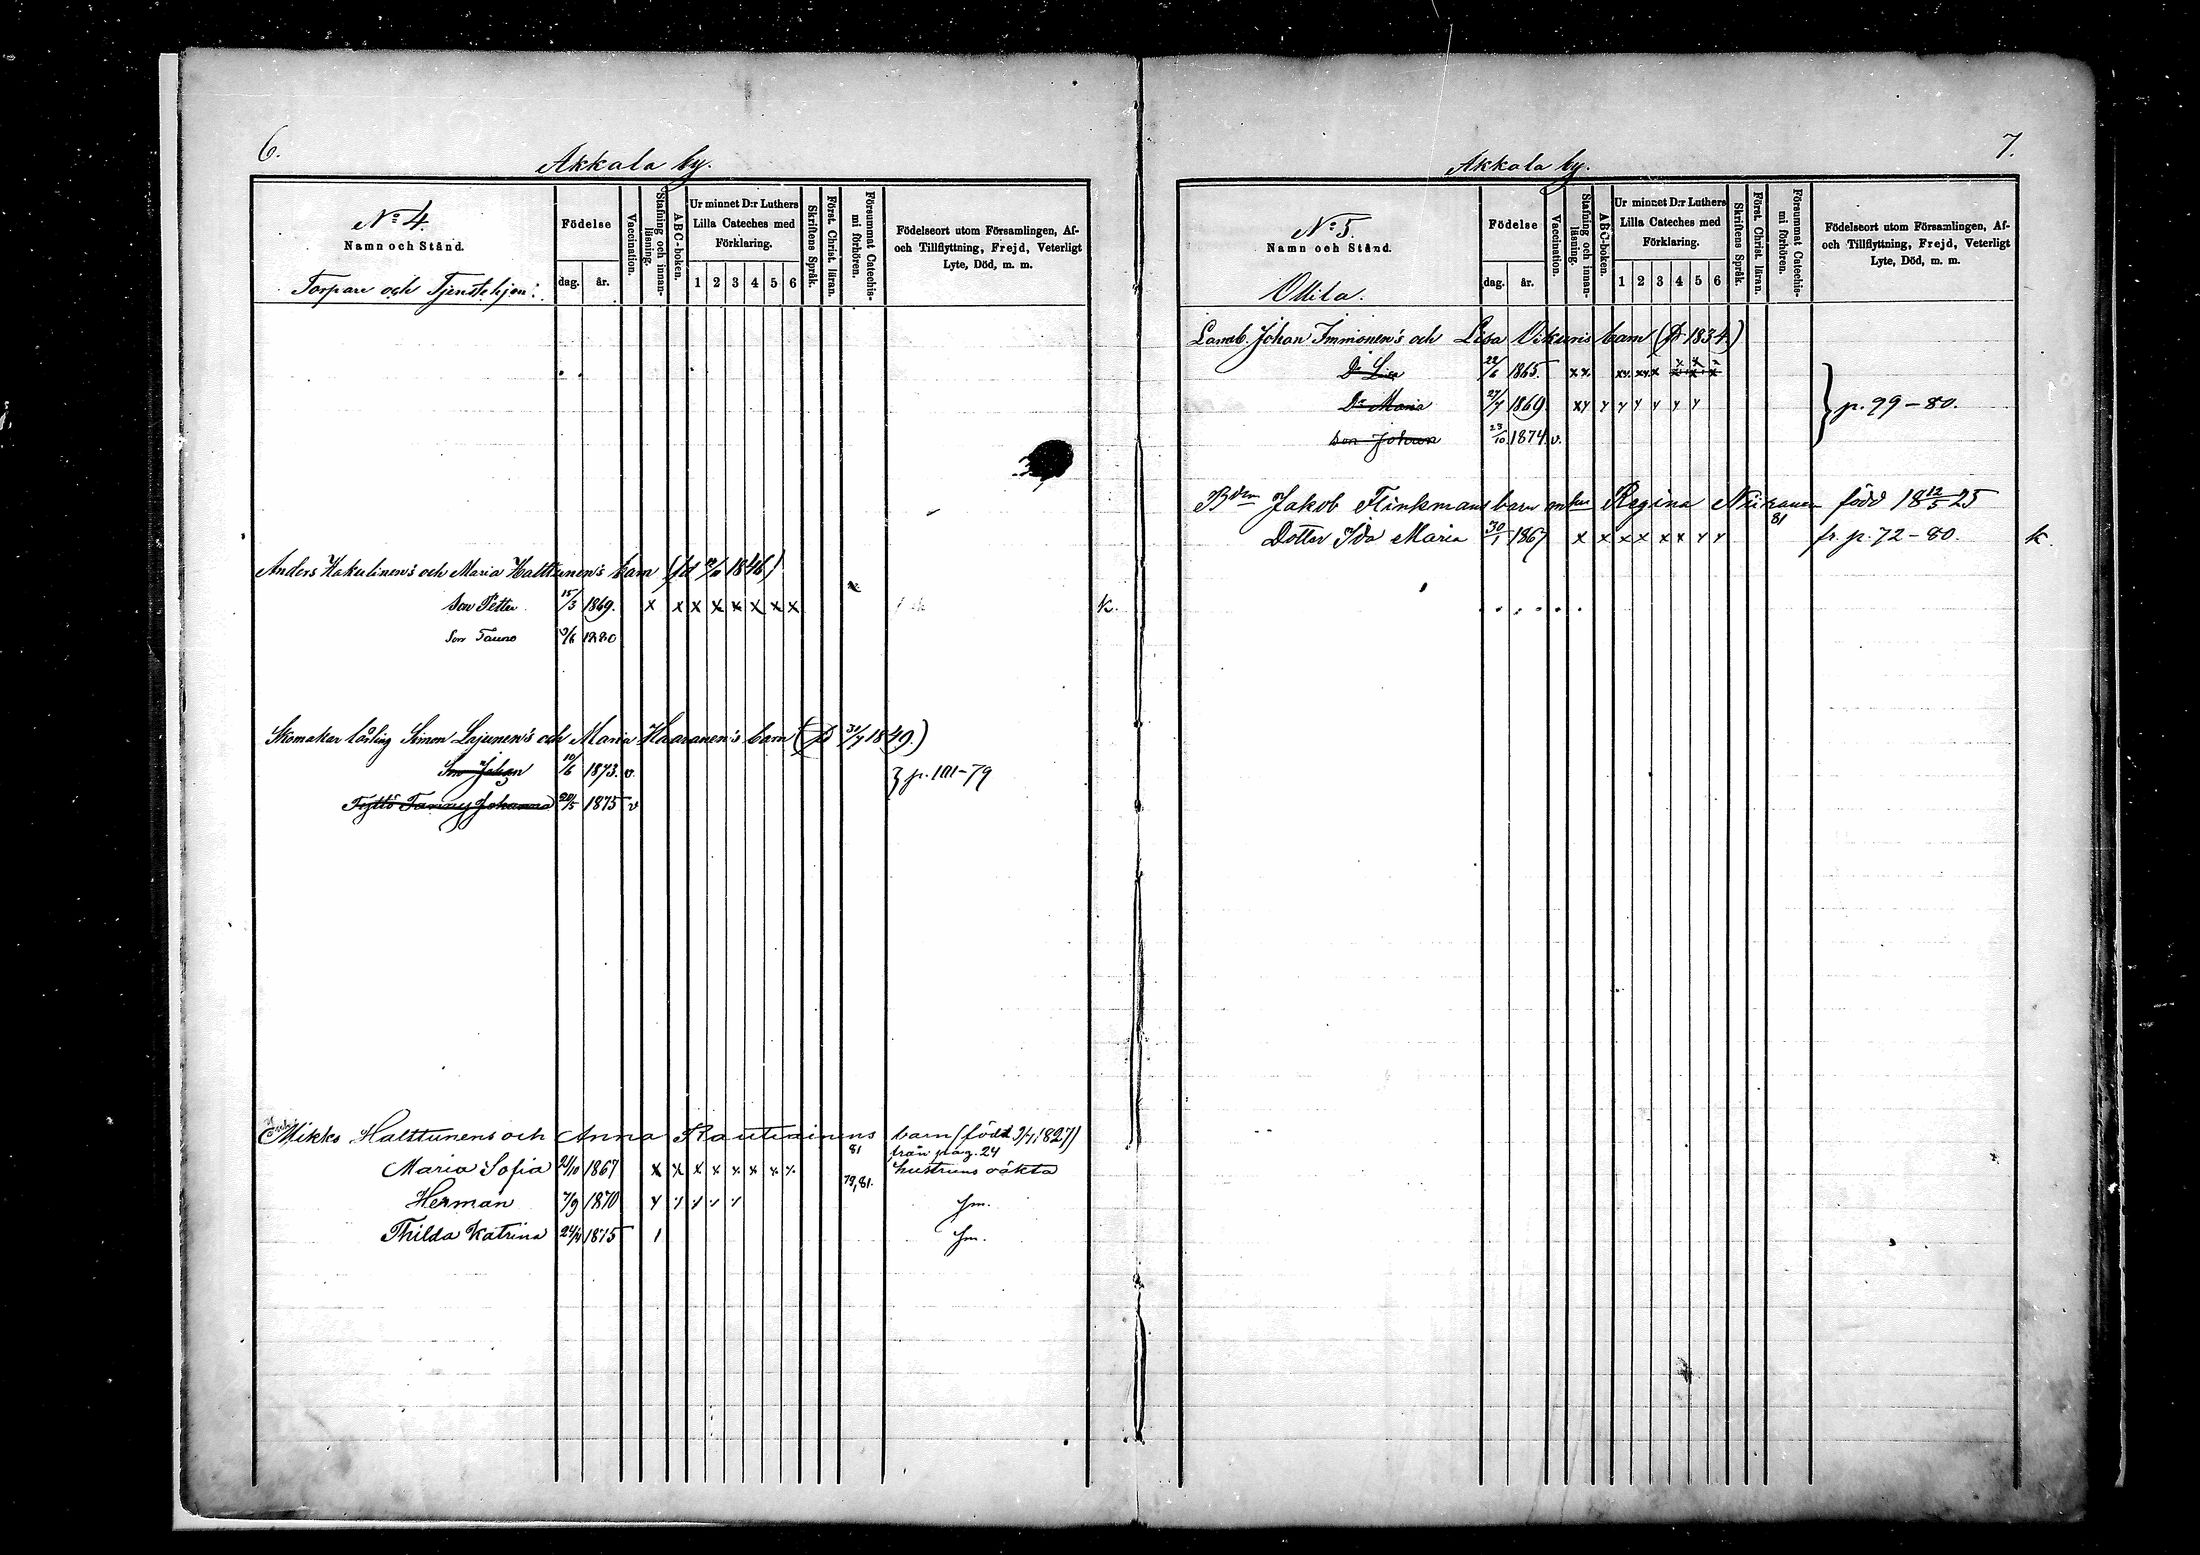 6.
Akkala by.
No 4.
Namn och Stånd.
Torpare och Tjenstehjon:
Födelse
dag. år.
Vaccination.
Stafning och innanläsning.
ABC-boken.
Ur minnet D:r Luthers Lilla Cateches med Förklaring.
1 2 3 4 5 6
Skriftens Språk.
Först. Christ. läran.
Försummat Catechismi förhören.
Födelseort utom Församlingen, Af- och Tillflyttning, Frejd, Veterligt Lyte, Död, m. m.
Anders Hakulinen's och Maria Halttunen's barn 1846)
Son Petter 15/3 1869. x x x x x x x x k.
Son Tauno 1880
Skomakar lärling Simon Lajunen's och Maria Haaranen's barn 1849.)
Son Johan 10/6 1873. v.
} p. 101-79
Tyttö Fanny Johanna 20/5 1875 v
Mikko Halttunens och Anna Rautiainens barn (född 3/4 1827)
81 från pag. 24
Maria Sofia 21/10 1867 x x x x x x x x hustruns oäkta
79, 81.
Herman 7/9 1870 Sm.
Thilda Katrina 24/4 1875 1 Sm.
7.
Akkala by.
No 5.
Namn och Stånd.
Ollila.
Födelse
dag. år.
Vaccination.
Stafning och innanläsning.
ABC-boken.
Ur minnet D:r Luthers Lilla Cateches med Förklaring.
1 2 3 4 5 6
Skriftens Språk.
Först. Christ. läran.
Försummat Catechismi förhören.
Födelseort utom Församlingen, Af- och Tillflyttning, Frejd, Veterligt Lyte, Död, m. m.
Landb. Johan Immonen's och Lisa barn 1834)
Dr Lisa 22/6 1865.
Dr Maria 27/7 1869. } p. 99-80.
Son Johan 23/10 1874 v.
Bdn Jakob Flinkmans barn m hu Regina född 18 12/5 25
81
Dotter Ida Maria 30/1 1867 x x x x x x fr. p. 72-80. k.